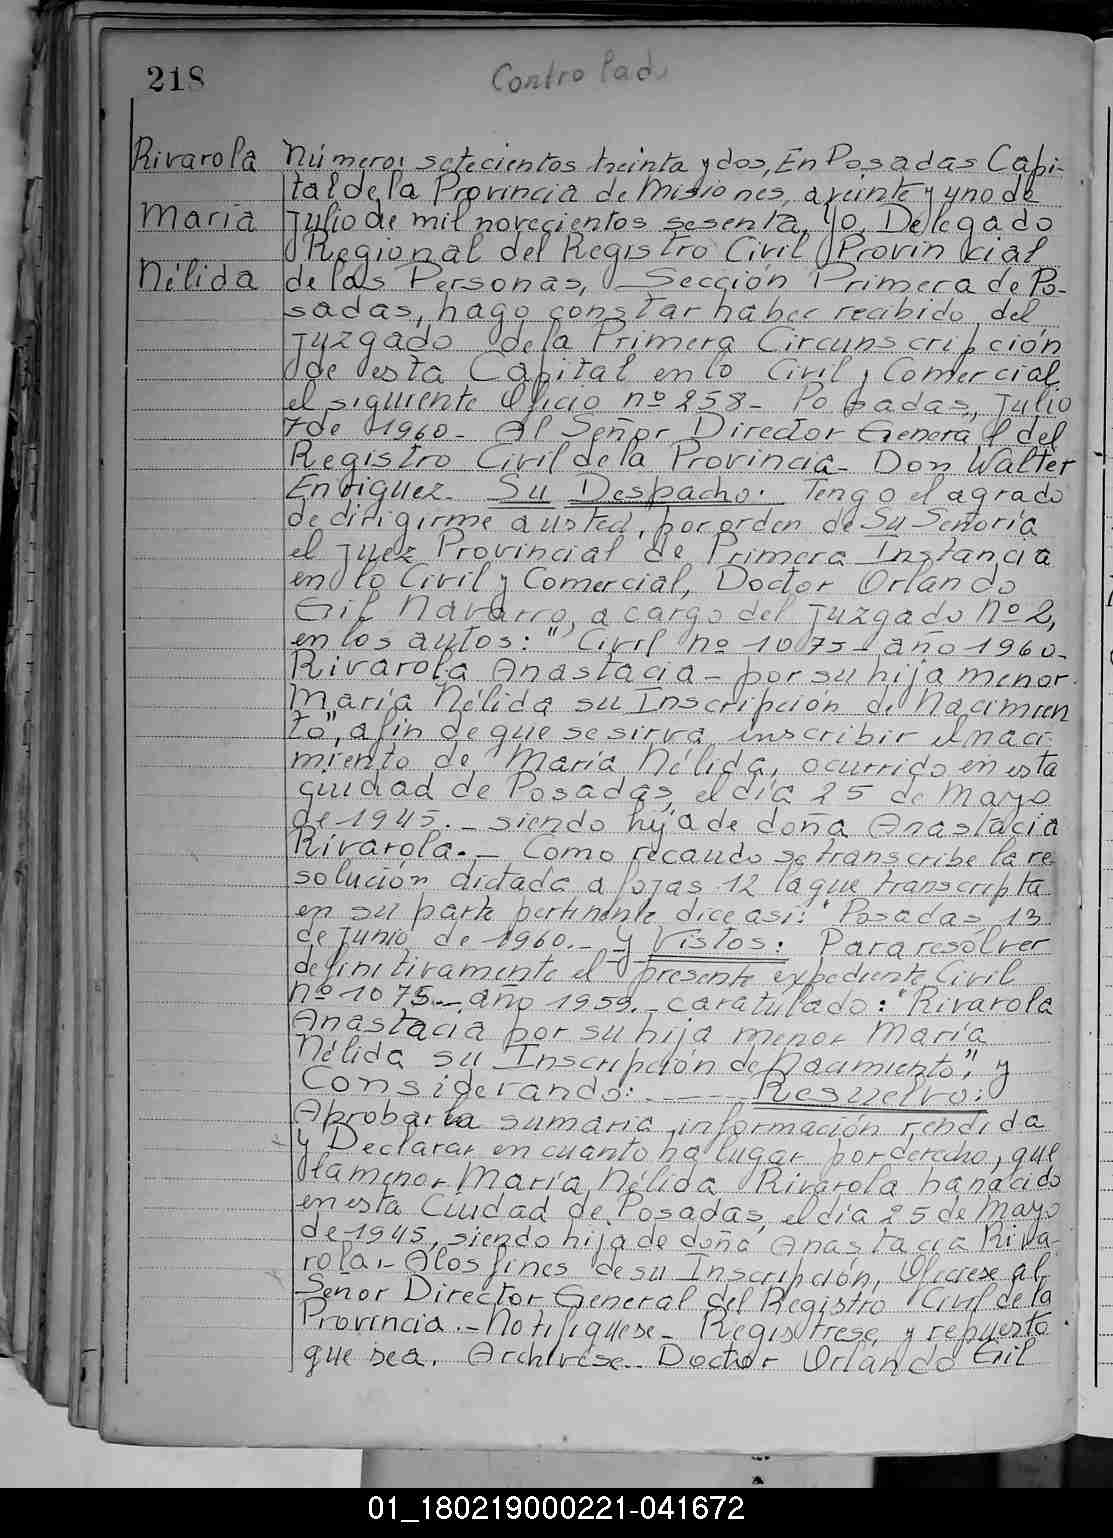 218
Controlado
Rivarola
María
Nélida
Número: setecientos treinta y dos, En Posadas Capi-
tal de la Provincia de Misiones, a veinte y uno de
Julio de mil novecientos sesenta, Yo, Delegado
Regional del Registro Civil Provincial
de las Personas, Sección Primera de Po-
sadas, hago constar haber recibido, del
Juzgado de la Primera Circunscripción
de esta Capital en lo Civil y Comercial
el siguiente Oficio nº 258- Posadas, Julio
7 de 1960- Al Señor Director General del
Registro Civil de la Provincia- Don Walter
Enriguez. Su Despacho: Tengo el agrado
de dirigirme a usted, por orden de Su Señoría
el Juez Provincial de Primera Instancia
en lo Civil y Comercial, Doctor Orlando
Gil Navarro, a cargo del Juzgado Nº 2,
en los autos: "Civil nº 1075- año 1960-
Rivarola Anastacia - por su hija menor
María Nélida su Inscripción de Nacimien
to", a fin de que se sirva inscribir el naci-
miento de María Nélida, ocurrido en esta
ciudad de Posadas, el día 25 de Mayo
de 1945.- siendo hija de doña Anastacia
Rivarola.- Como recaudo se transcribe la re
solución dictada a fojas 12 la que transcripta
en su parte pertinente dice así: "Posadas 13
de Junio de 1960.- y Vistos: Para resolver
definitivamente el presente expediente Civil
nº 1075- año 1959.- caratulado: "Rivarola
Anastacia por su hija menor María
Nélida su Inscripción de Nacimiento", y
Considerando: .---- Resuelvo:
Aprobar la sumaria información rendida
y Declarar en cuanto ha lugar por derecho, que
la menor María Nélida Rivarola ha nacido
en esta Ciudad de Posadas, el día 25 de Mayo
de 1945, siendo hija de doña Anastacia Riva-
rola.- A los fines de su Inscripción, Ofíciese al
Señor Director General del Registro Civil de la
Provincia.- Notifíquese- Regístrese, y repuesto
que sea, Archívese.- Doctor Orlando Gil
01_180219000221-041672